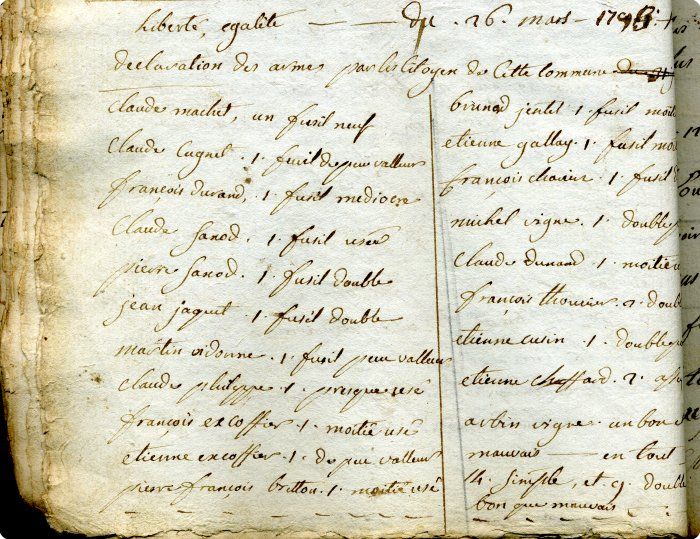 liberté, egalité — — du . 26 . mars — 1793 .
déclaration des armes par les Citoyen de Cette Commune
Claude machet, un fusil neuf
Claude Cugnet . 1 . fusil de peu valleur
françois durand, . 1 . fusil mediocre
Claude Sanod . 1 . fusil usée
pierre Sanod . 1 . fusil double
jean jaquet . 1 . fusil double
martin vidonne . 1 . fusil peu valleur
Claude philippe . 1 . presque usé
françois excoffier . 1 . moitié usé
etienne excoffier . 1 . de peu valleur
pierre françois britton . 1 . moitié usé
jentil 1 . fusil moitié
etienne gallay . 1 . fusil
françois . 1 . fusil
michel vigne . 1 . double
Claude dunand . 1 . moitié
françois thouvier . 2 . double
etienne cusin . 1 . double
etienne chaffard . 2 .
arbin vigne . un bon
mauvais — en tout
14 . simple, et 9 . double
bon que mauvais